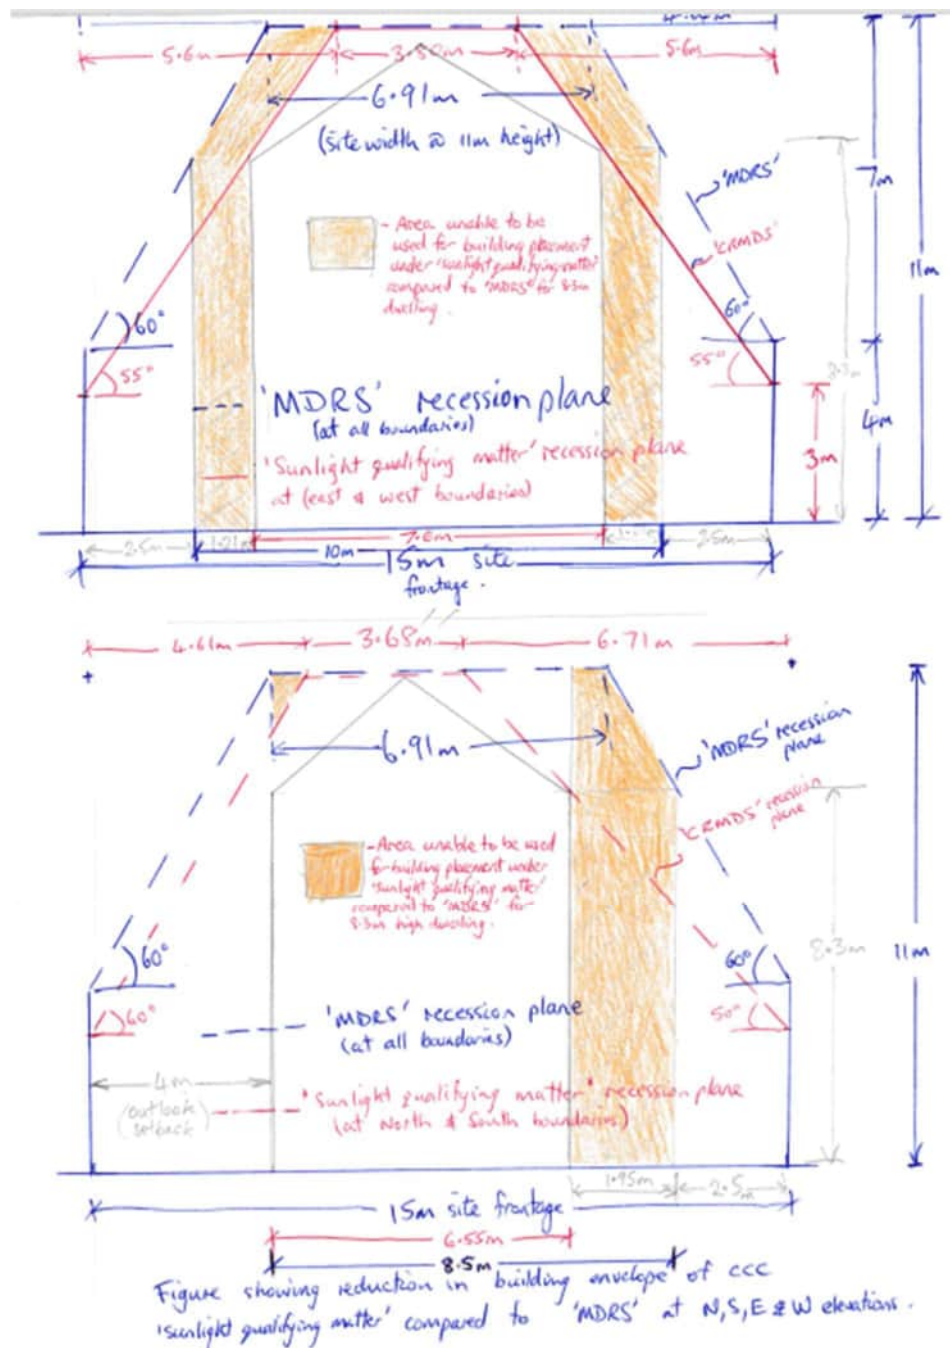 5.6m
5.6m
6.91m
(site width @ 11m height)
'MDRS'
'CRMDS'
7m
11m
- Area unable to be
used for building placement
under 'sunlight qualifying matter'
compared to 'MDRS' for 8.3m
dwelling.
60°
60°
55°
55°
4m
3m
'MDRS' recession plane
(at all boundaries)
'Sunlight qualifying matter' recession plane
at (east & west boundaries)
2.5m
1.21m
2.5m
10m
15m site
frontage.
4.61m
3.68m
6.71m
6.91m
'MDRS' recession
plane
'CRMDS' recession
plane
- Area unable to be used
for building placement under
'sunlight qualifying matter'
compared to 'MDRS' for
8.3m high dwelling.
60°
60°
60°
50°
8.3m
11m
'MDRS' recession plane
(at all boundaries)
4m
(outlook
setback)
'Sunlight qualifying matter' recession plane
(at North & South boundaries)
1.95m
2.5m
15m site frontage
6.55m
8.5m
Figure showing reduction in 'building envelope' of CCC
'sunlight qualifying matter' compared to 'MDRS' at N,S,E & W elevations.